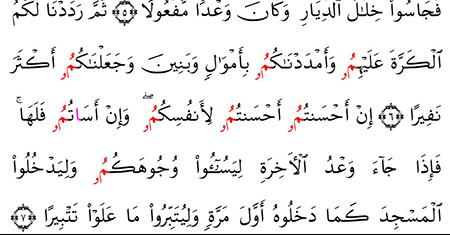 فَجَاسُواْ خِلَٰلَ ٱلدِّيَارِ وَكَانَ وَعْدًا مَّفْعُولًا ۝٥ ثُمَّ رَدَدْنَا لَكُمُ
ٱلْكَرَّةَ عَلَيْهِمُۥ وَأَمْدَدْنَٰكُمُۥ بِأَمْوَٰلٍ وَبَنِينَ وَجَعَلْنَٰكُمُۥ أَكْثَرَ
نَفِيرًا ۝٦ إِنْ أَحْسَنتُمُۥ أَحْسَنتُمُۥ لِأَنفُسِكُمُۥ ۖ وَإِنْ أَسَاتُمُۥ فَلَهَا ۚ
فَإِذَا جَآءَ وَعْدُ ٱلْأٓخِرَةِ لِيَسُـُٔواْ وُجُوهَكُمُۥ وَلِيَدْخُلُواْ
ٱلْمَسْجِدَ كَمَا دَخَلُوهُ أَوَّلَ مَرَّةٍ وَلِيُتَبِّرُواْ مَا عَلَوْاْ تَتْبِيرًا ۝٧